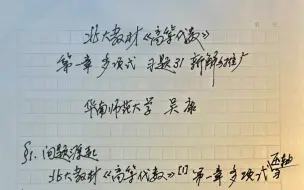 北大教材《高等代数》
第一章 多项式 习题31 新解与推广
华南师范大学 吴康
§1. 问题源起
北大教材《高等代数》[1]第一章多项式